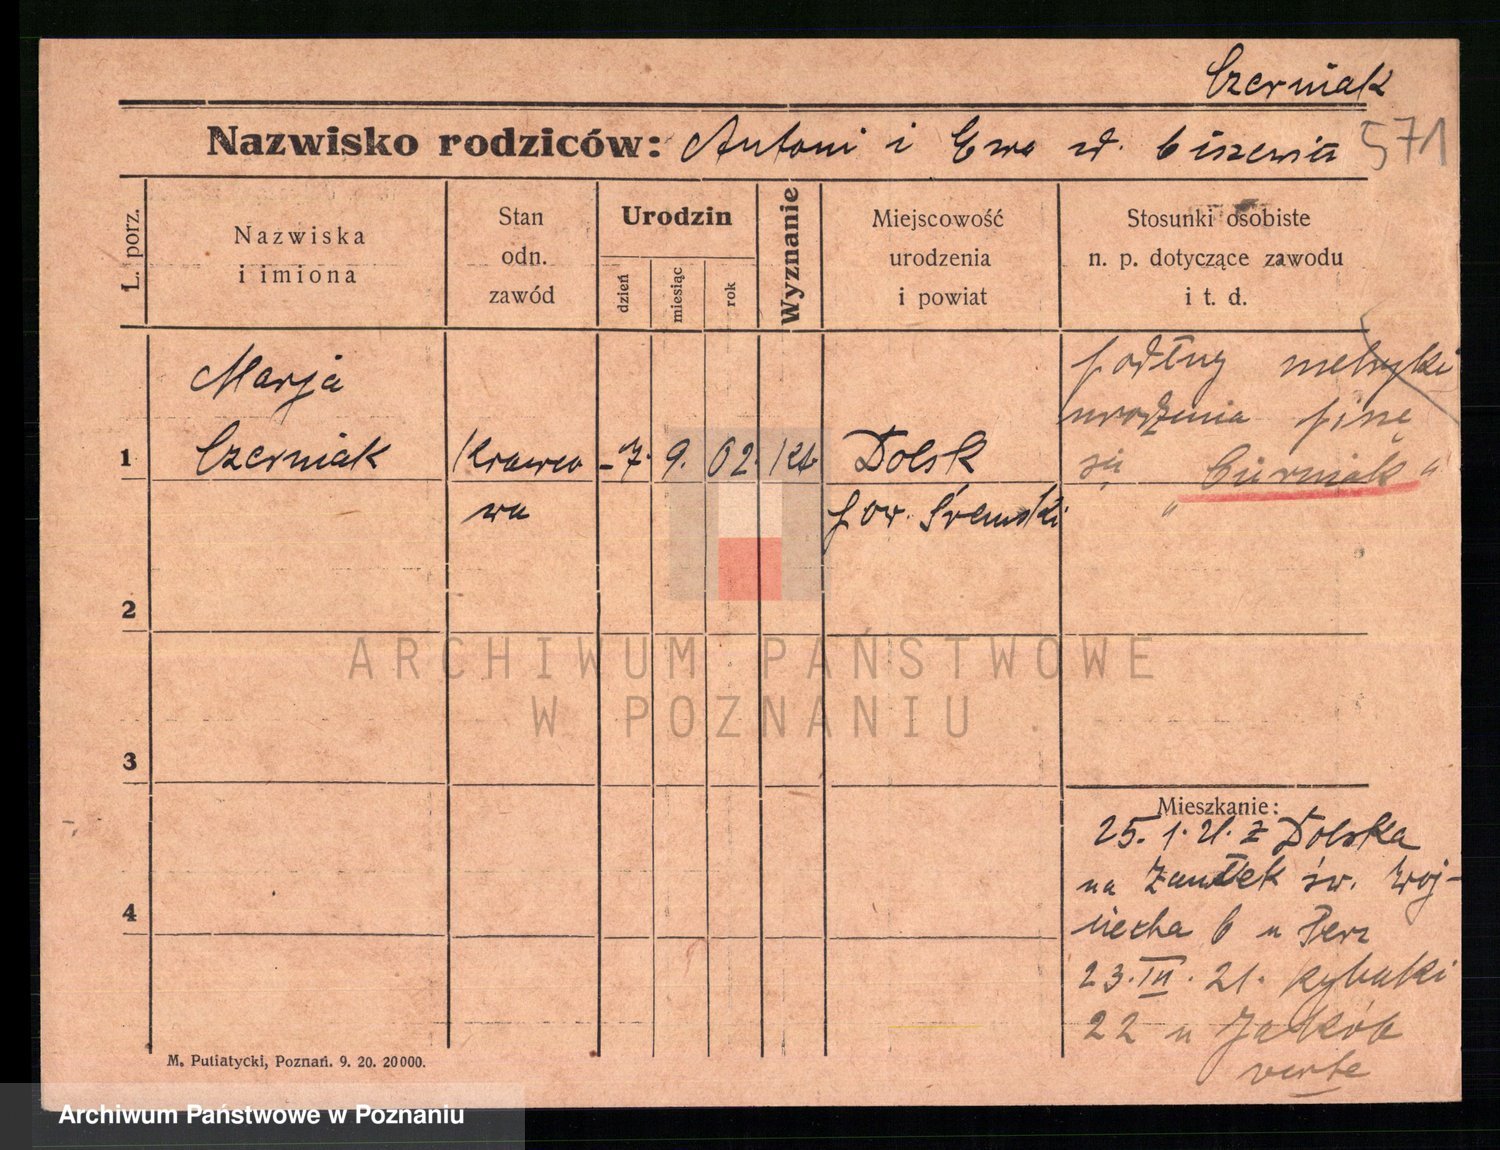 Czerniak
Nazwisko rodziców: Antoni i Ewa
571
L. porz.
Nazwiska
i imiona
Stan
odn.
zawód
Urodzin
dzień
miesiąc
rok
Wyznanie
Miejscowość
urodzenia
i powiat
Stosunki osobiste
n. p. dotyczące zawodu
i t. d.
Marja
1 Czerniak Krawco 7. 9. 02. Kt Dolsk
wa pow. Śremski
podług metryki
urodzenia pisze
się „Cierniak“
2
3
4
Mieszkanie:
25. 1. 21. z Dolska
na Zaułek św. Woj-
ciecha 6 u
23. III. 21. Rybaki
22 u
verte
M. Putiatycki, Poznań. 9. 20. 20000.
ARCHIWUM PAŃSTWOWE
W POZNANIU
Archiwum Państwowe w Poznaniu